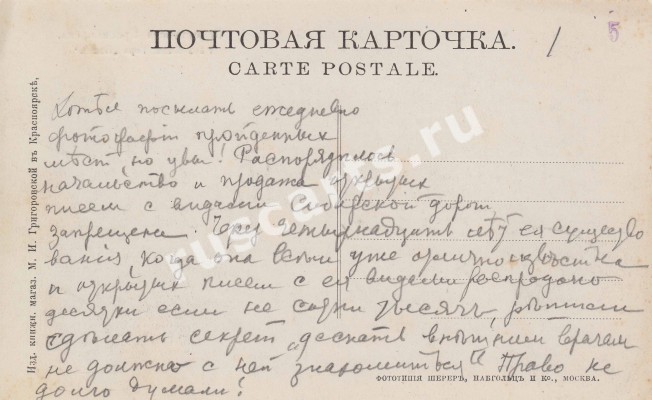 ПОЧТОВАЯ КАРТОЧКА.
CARTE POSTALE.
5
Изд. книжн. магаз. М. И. Григоровской въ Красноярскѣ,
Хотѣл посылать ежедневно
фотографіи пройденных
мѣст, но увы! Распорядилось
начальство и продажа открытых
писем с видами Сибирской дорог
запрещена. Чрез четырнадцать лѣт ея существо
ванія, когда она всѣм уже отлично извѣстна
и открытых писем с ея видами распродано
десятки если не сотни тысяч, рѣшили
сдѣлать секрет „дескать внѣшніи врагам
не должно с ней знакомиться“ Право не
долго думали!
ФОТОТИПІЯ ШЕРЕРЪ, НАБГОЛЬЦЪ И КО., МОСКВА.
ruscards.ru